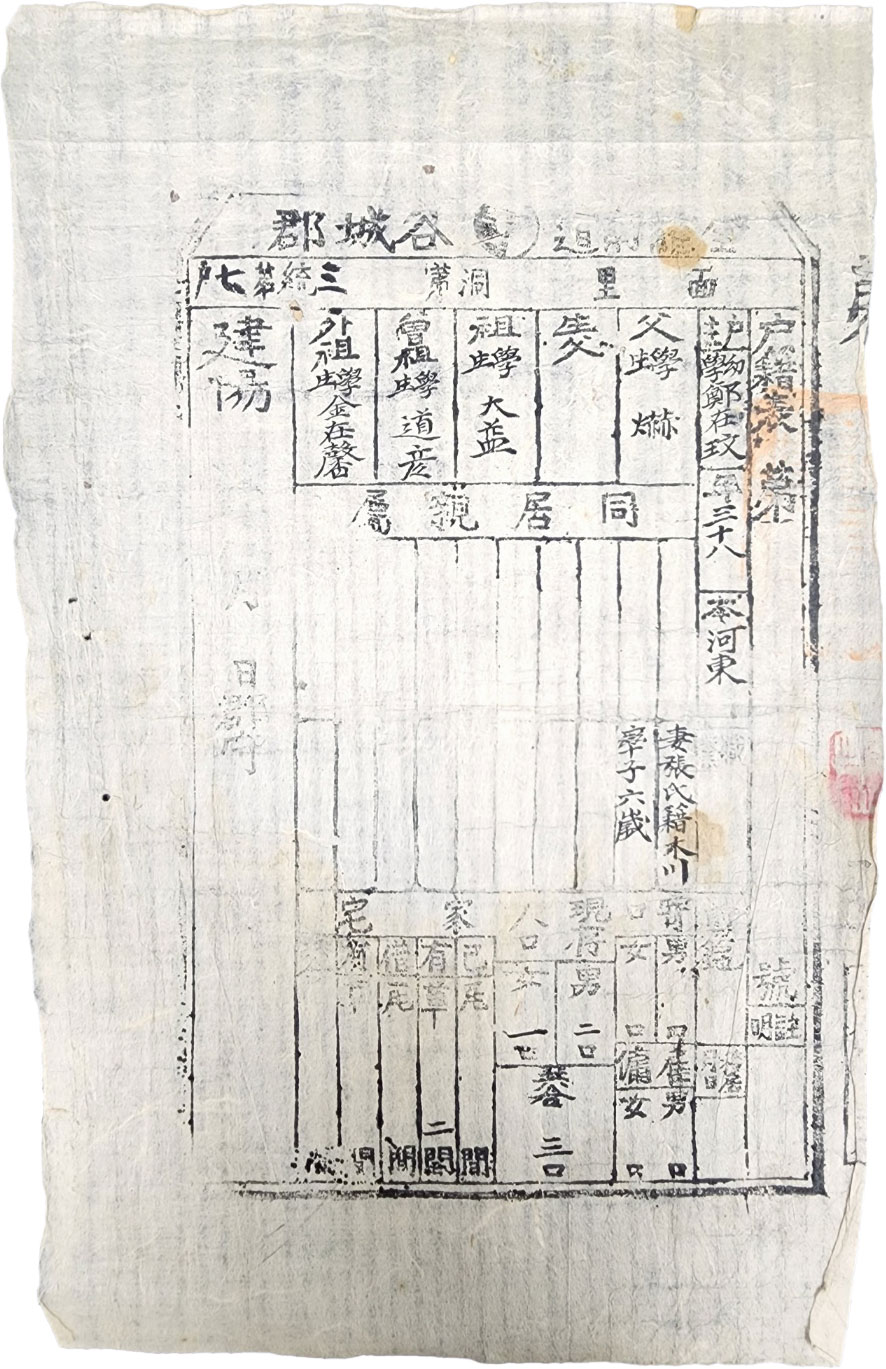 全羅南道 谷城郡
面 里 洞 第三統第七戶
戶籍表 第
號
註明
戶主 幼學 鄭在玟
年三十八
本河東
父 學生
生父
祖 學生 大益
曾祖 學生 道彦
外祖 學生 金在馨
同居親屬
妻張氏籍木川
率子六歲
寄口
男 口
女 口
雇傭
男 口
女 口
現存人口
男 二口
女 一口
共合 三口
家宅
瓦 間
草 二間
借
瓦 間
間
建陽
月 日郡守